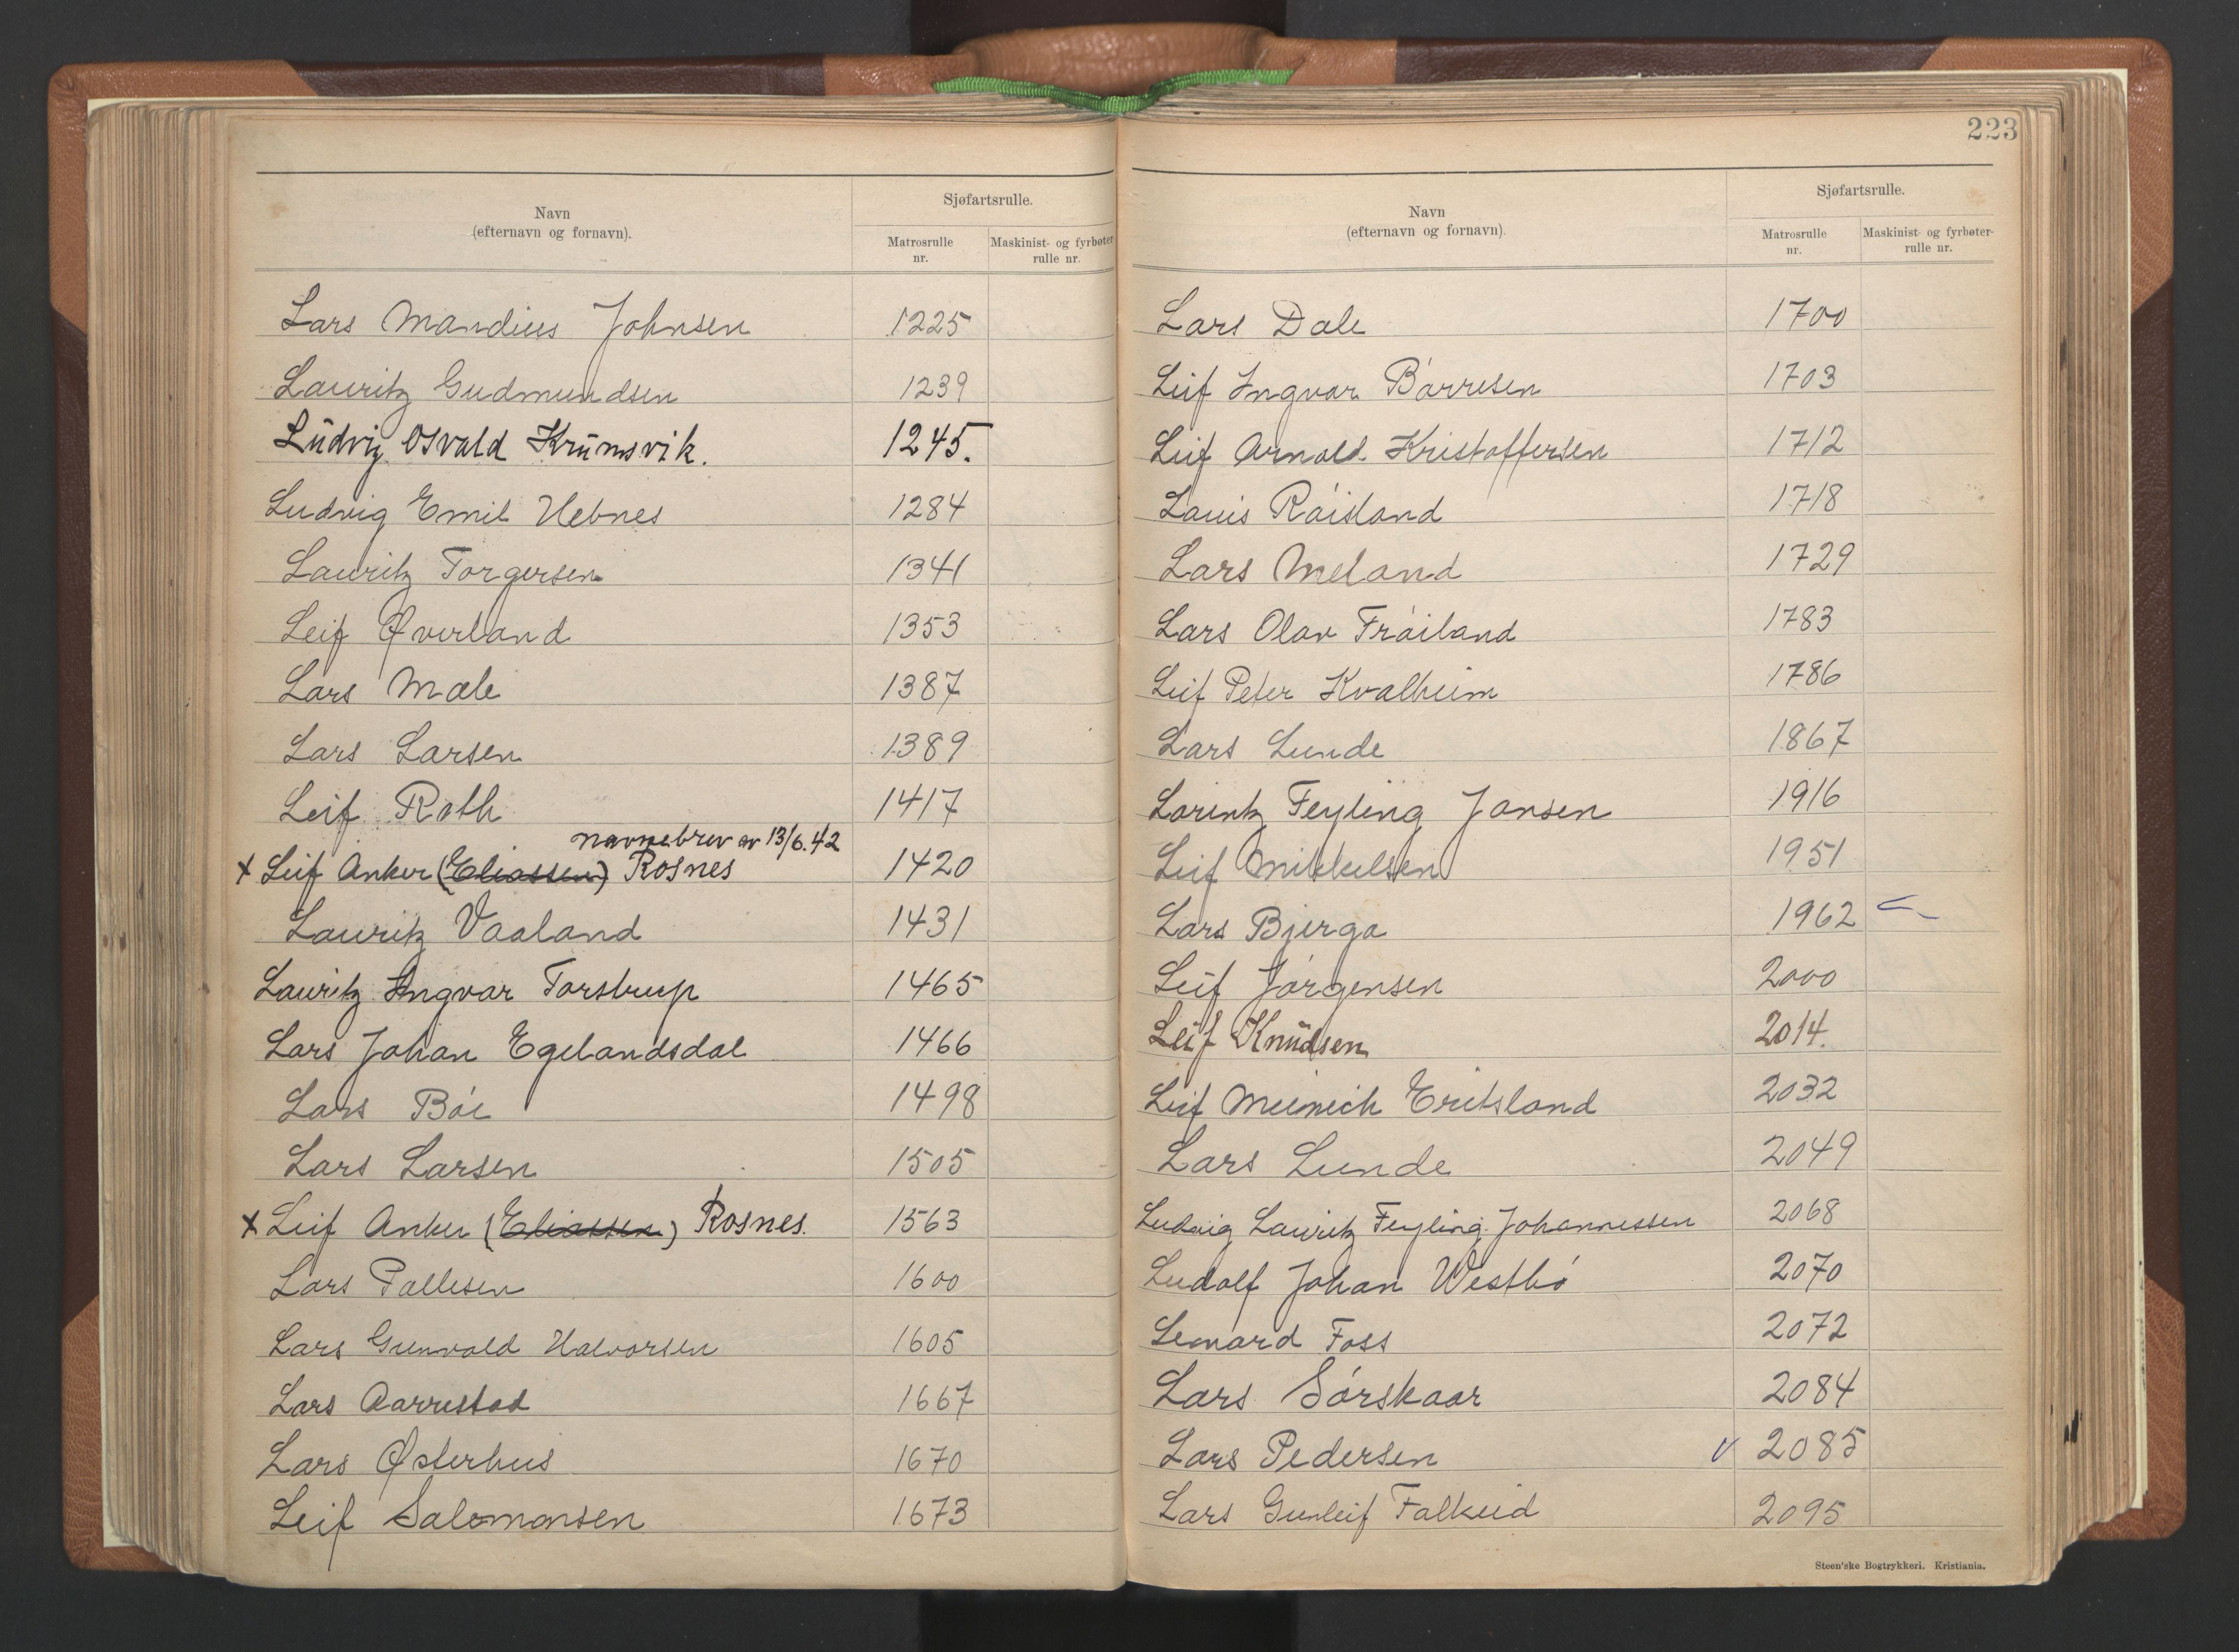 Navn
(efternavn og fornavn).
Sjøfartsrulle.
Matrosrulle nr.
Maskinist- og fyrbøter rulle nr.
Lars Mandius Johnsen 1225
Lauritz Gudmundsen 1239
Ludvig Osvald Krumsvik. 1245.
Ludvig Emil Hebnes 1284
Lauritz Torgersen 1341
Leif Øverland 1353
Lars Mæle 1387
Lars Larsen 1389
Leif Roth 1417
navnebrev av 13/6.42
x Leif Anker (Eliassen) Rosnes 1420
Lauritz Vaaland 1431
Lauritz Ingvar Torstrup 1465
Lars Johan Egelandsdal 1466
Lars Bóe 1498
Lars Larsen 1505
x Leif Anker (Eliassen) Rosnes. 1563
Lars Pallesen 1600
Lars Gunvald Halvorsen 1605
Lars Aarrestad 1667
Lars Østerhus 1670
Leif Salomonsen 1673
223
Navn
(efternavn og fornavn).
Sjøfartsrulle.
Matrosrulle nr.
Maskinist- og fyrbøter- rulle nr.
Lars Dale 1700
Leif Ingvar Bórresen 1703
Leif Arnold Kristoffersen 1712
Louis Róisland 1718
Lars Meland 1729
Lars Olav Fróiland 1783
Leif Peter Kvalheim 1786
Lars Lunde 1867
Lorintz Feyling Jansen 1916
Leif Mikkelsen 1951
Lars Bjerga 1962
Leif Jórgensen 2000
Leif Knudsen 2014.
Leif Meinich Eritsland 2032
Lars Lunde 2049
Ludvig Lauritz Feyling Johannessen 2068
Ludolf Johan Westbó 2070
Lenard Foss 2072
Lars Sórskaar 2084
Lars Pedersen v 2085
Lars Gunleif Falkeid 2095
Steen'ske Bogtrykkeri. Kristiania.